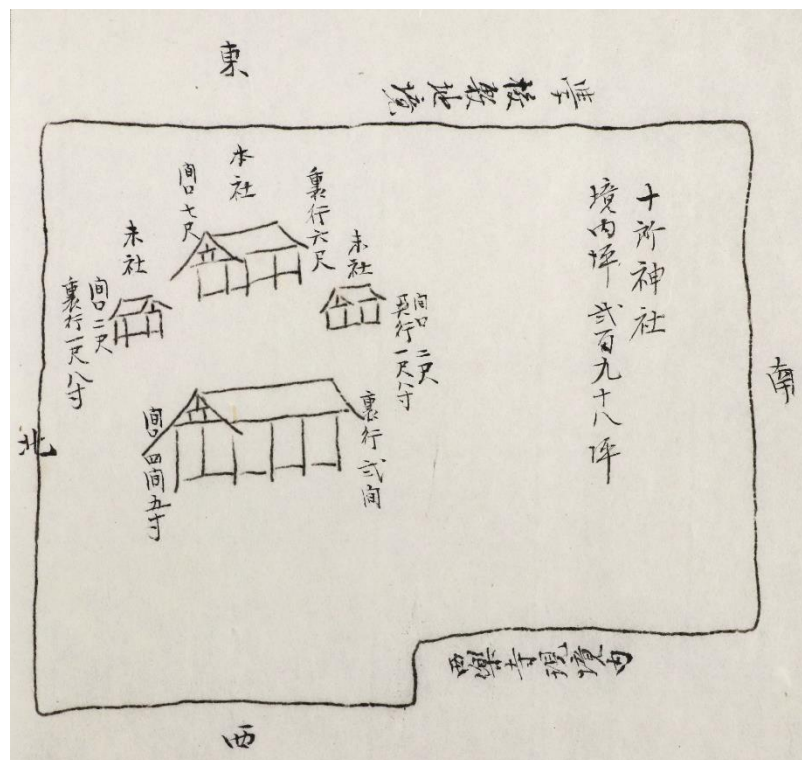 東
學校敷地境
十所神社
境内坪 弐百九十八坪
本社
間口七尺
裏行六尺
末社
間口二尺
裏行一尺八寸
末社
間口二尺
裏行一尺八寸
裏行弐間
間口四間五寸
南
北
西
境内